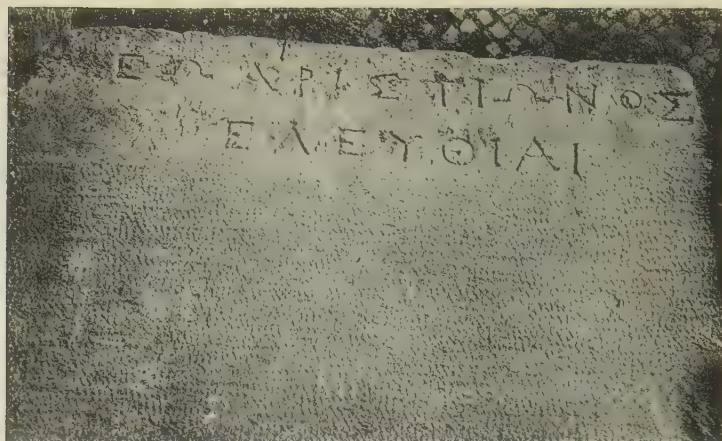 ΕΩ ΑΡΙΣΤΙΩΝΟΣ
ΕΛΕΥΘΙΑΙ